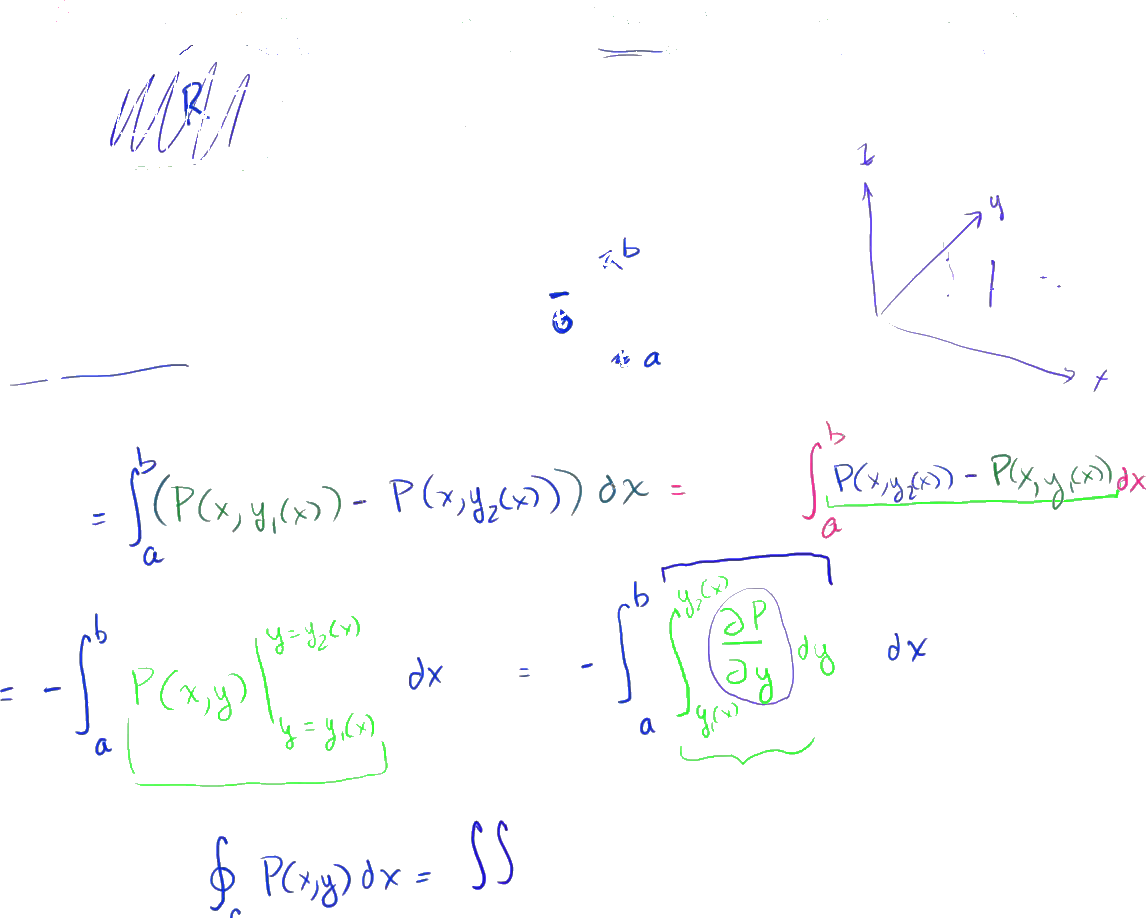 R
z
y
b
a
x
= ∫_a^b (P(x, y₁(x)) - P(x, y₂(x))) dx = ∫_a^b P(x, y₂(x)) - P(x, y₁(x)) dx
= - ∫_a^b P(x,y) |_{y = y₁(x)}^{y = y₂(x)} dx = - ∫_a^b ∫_{y₁(x)}^{y₂(x)} ∂P/∂y dy dx
∮_c P(x,y) dx = ∬